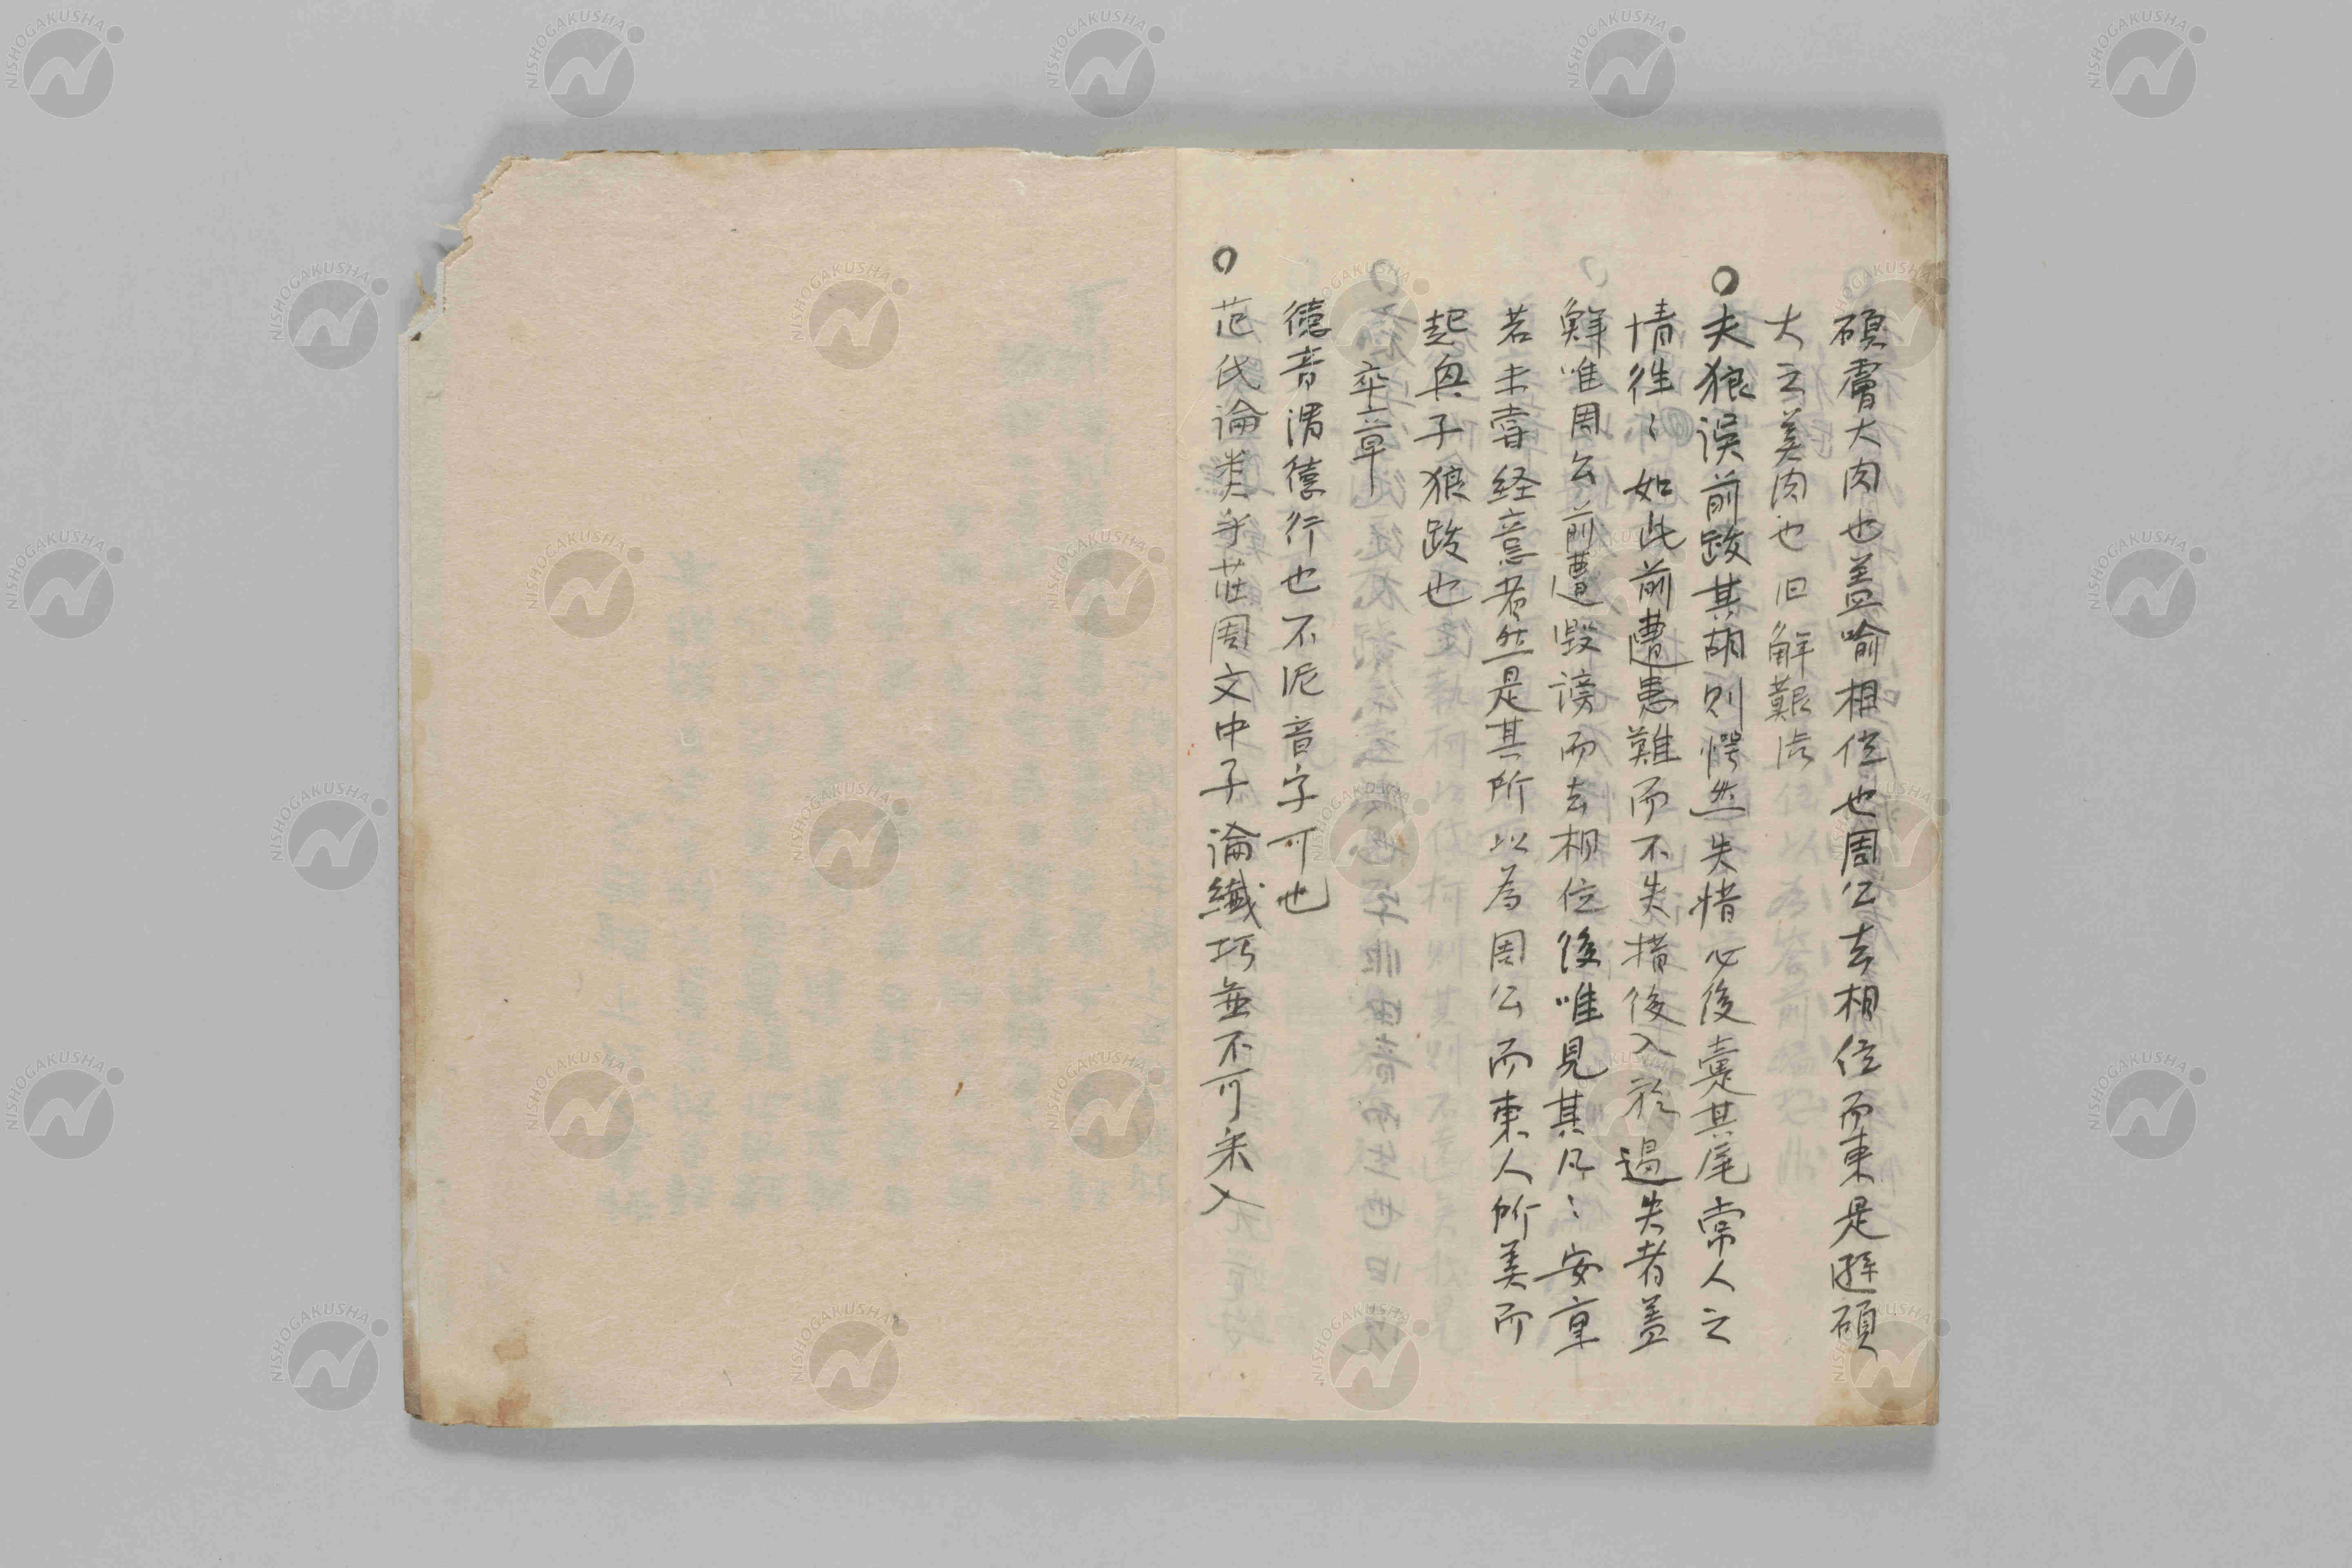 碩膚大肉也蓋喻相位也周公去相位而東是遜碩
大之美肉也旧解艱渋
○夫狼誤前跋其胡則愕然失措心後疐其尾常人之
情徃〻如此前遭患難而不失措後入於過失者蓋
鮮唯周公前遭毀謗而去相位後唯見其几〻安重
若未嘗経意者然是其所以為周公而東人所美而
起與于狼跋也
卒章
德音謂德行也不泥音字可也
○范氏論类乎荘周文中子論纎巧並不可采入
NISHOGAKUSHA